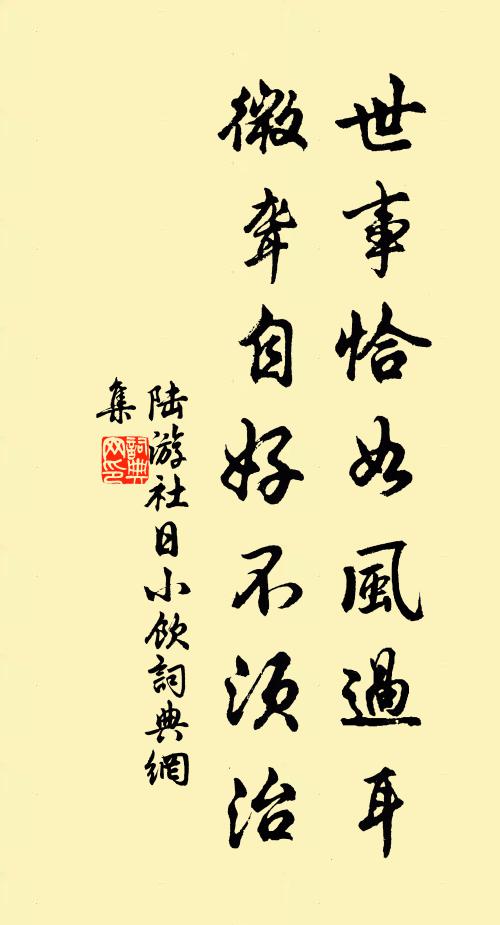 世事恰如風過耳
微聾自好不須治
陸游社日小飲詞典網
集
詞典
网印